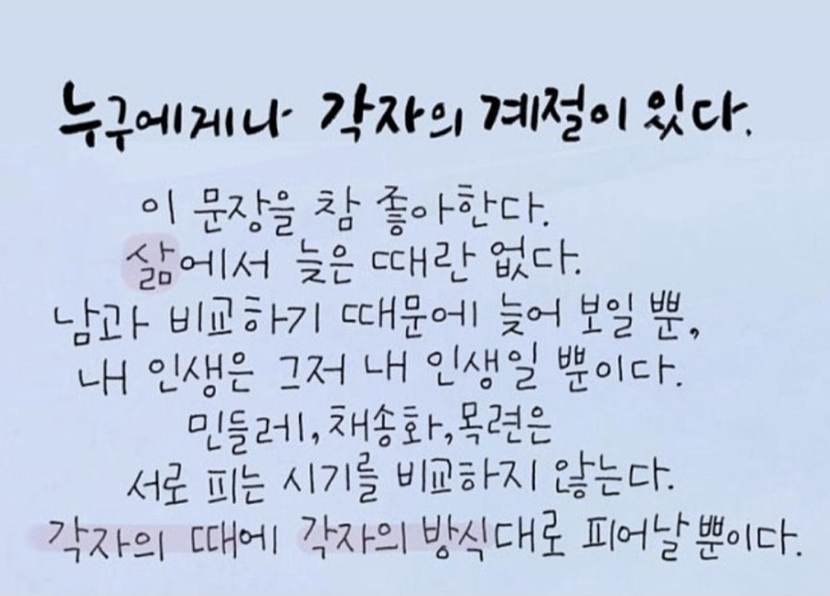 누구에게나 각자의 계절이 있다.
이 문장을 참 좋아한다.
삶에서 늦은 때란 없다.
남과 비교하기 때문에 늦어 보일 뿐,
내 인생은 그저 내 인생일 뿐이다.
민들레, 채송화, 목련은
서로 피는 시기를 비교하지 않는다.
각자의 때에 각자의 방식대로 피어날 뿐이다.